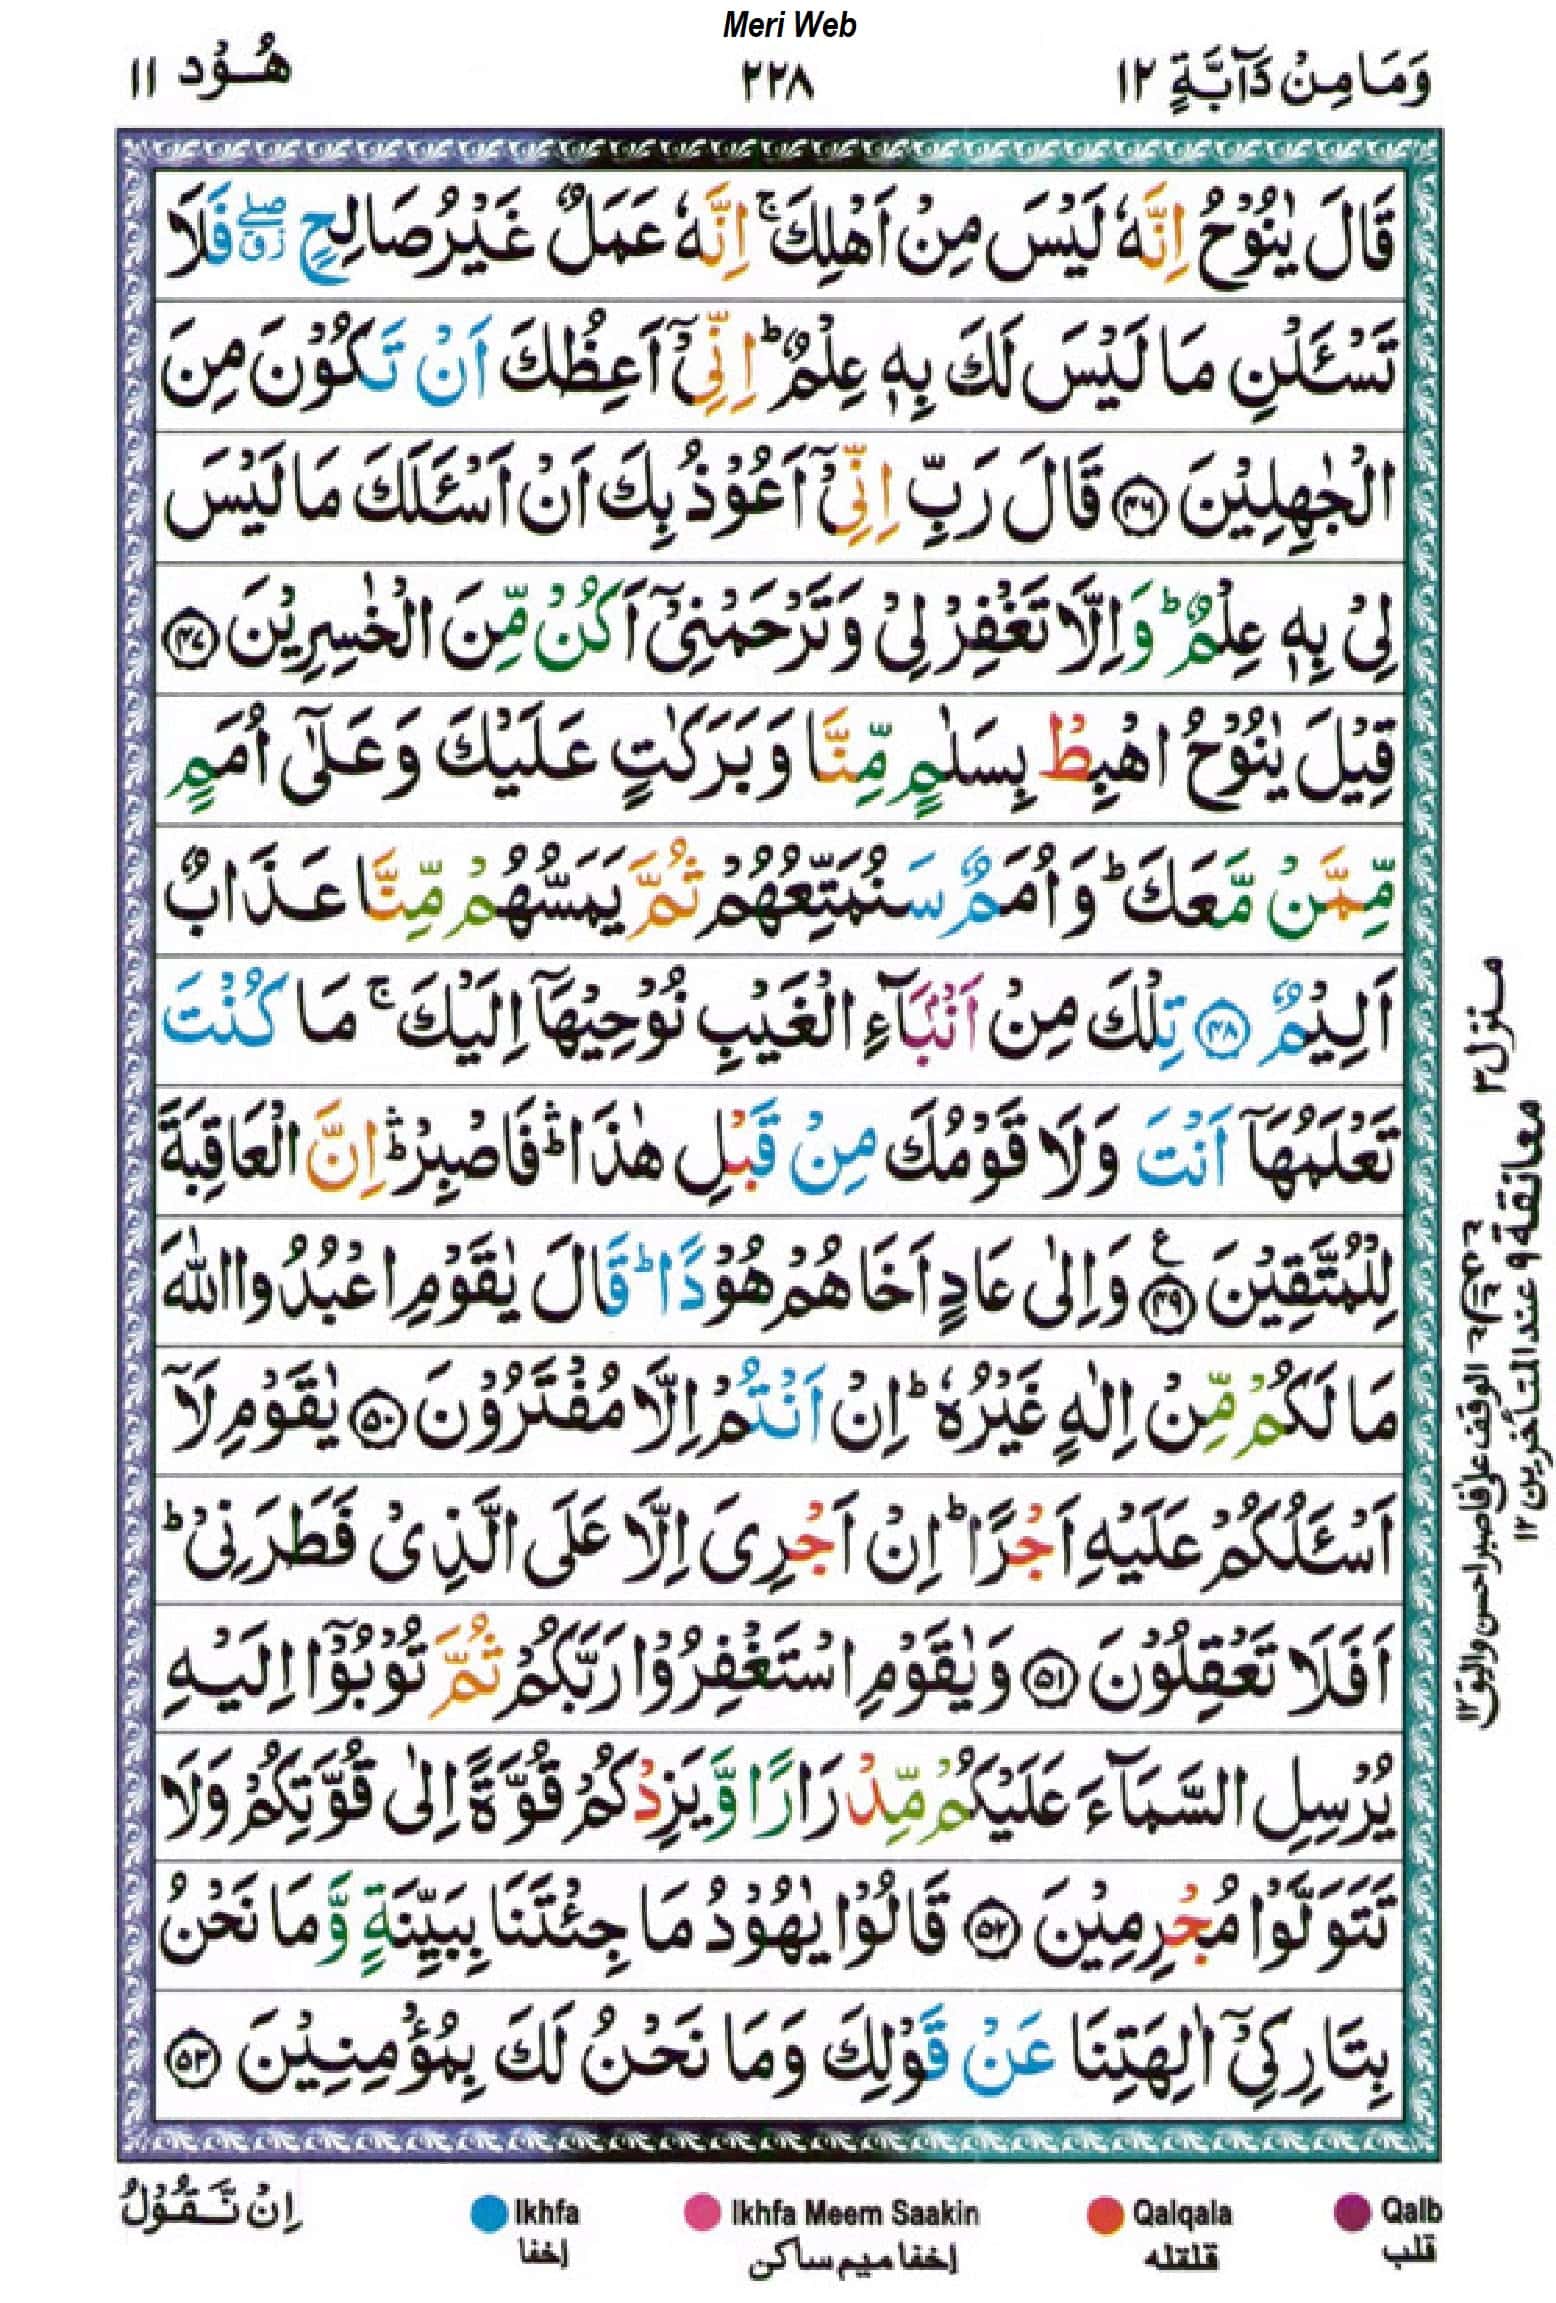 Meri Web
وَمَا مِنْ دَآبَّةٍ ١٢ ٢٢٨ هُوْد ١١
قَالَ يٰنُوْحُ اِنَّهٗ لَيْسَ مِنْ اَهْلِكَ ۚ اِنَّهٗ عَمَلٌ غَيْرُ صَالِحٍ ۖ ق فَلَا
تَسْـَٔلْنِ مَا لَيْسَ لَكَ بِهٖ عِلْمٌ ؕ اِنِّيْۤ اَعِظُكَ اَنْ تَكُوْنَ مِنَ
الْجٰهِلِيْنَ ﴿۴۶﴾ قَالَ رَبِّ اِنِّيْۤ اَعُوْذُ بِكَ اَنْ اَسْـَٔلَكَ مَا لَيْسَ
لِيْ بِهٖ عِلْمٌ ؕ وَاِلَّا تَغْفِرْ لِيْ وَتَرْحَمْنِيْۤ اَكُنْ مِّنَ الْخٰسِرِيْنَ ﴿۴۷﴾
قِيْلَ يٰنُوْحُ اهْبِطْ بِسَلٰمٍ مِّنَّا وَبَرَكٰتٍ عَلَيْكَ وَعَلٰۤى اُمَمٍ
مِّمَّنْ مَّعَكَ ؕ وَاُمَمٌ سَنُمَتِّعُهُمْ ثُمَّ يَمَسُّهُمْ مِّنَّا عَذَابٌ
اَلِيْمٌ ﴿۴۸﴾ تِلْكَ مِنْ اَنْۢبَآءِ الْغَيْبِ نُوْحِيْهَاۤ اِلَيْكَ ۚ مَا كُنْتَ
تَعْلَمُهَاۤ اَنْتَ وَلَا قَوْمُكَ مِنْ قَبْلِ هٰذَا ؕۛ فَاصْبِرْ ؕۛ اِنَّ الْعَاقِبَةَ
لِلْمُتَّقِيْنَ ﴿۴۹﴾ ع وَاِلٰى عَادٍ اَخَاهُمْ هُوْدًا ؕ قَالَ يٰقَوْمِ اعْبُدُوا اللّٰهَ
مَا لَكُمْ مِّنْ اِلٰهٍ غَيْرُهٗ ؕ اِنْ اَنْتُمْ اِلَّا مُفْتَرُوْنَ ﴿۵۰﴾ يٰقَوْمِ لَاۤ
اَسْـَٔلُكُمْ عَلَيْهِ اَجْرًا ؕ اِنْ اَجْرِيَ اِلَّا عَلَى الَّذِيْ فَطَرَنِيْ ؕ
اَفَلَا تَعْقِلُوْنَ ﴿۵۱﴾ وَيٰقَوْمِ اسْتَغْفِرُوْا رَبَّكُمْ ثُمَّ تُوْبُوْۤا اِلَيْهِ
يُرْسِلِ السَّمَآءَ عَلَيْكُمْ مِّدْرَارًا وَّيَزِدْكُمْ قُوَّةً اِلٰى قُوَّتِكُمْ وَلَا
تَتَوَلَّوْا مُجْرِمِيْنَ ﴿۵۲﴾ قَالُوْا يٰهُوْدُ مَا جِئْتَنَا بِبَيِّنَةٍ وَّمَا نَحْنُ
بِتَارِكِيْۤ اٰلِهَتِنَا عَنْ قَوْلِكَ وَمَا نَحْنُ لَكَ بِمُؤْمِنِيْنَ ﴿۵۳﴾
منزل ٣
معانقة ٩ عند المتأخرين ١٢
الوقف على فاصبر احسن واليق ١٢
اِنْ نَّقُوْلُ
Ikhfa
إخفا
Ikhfa Meem Saakin
إخفا ميم ساكن
Qalqala
قلقله
Qalb
قلب